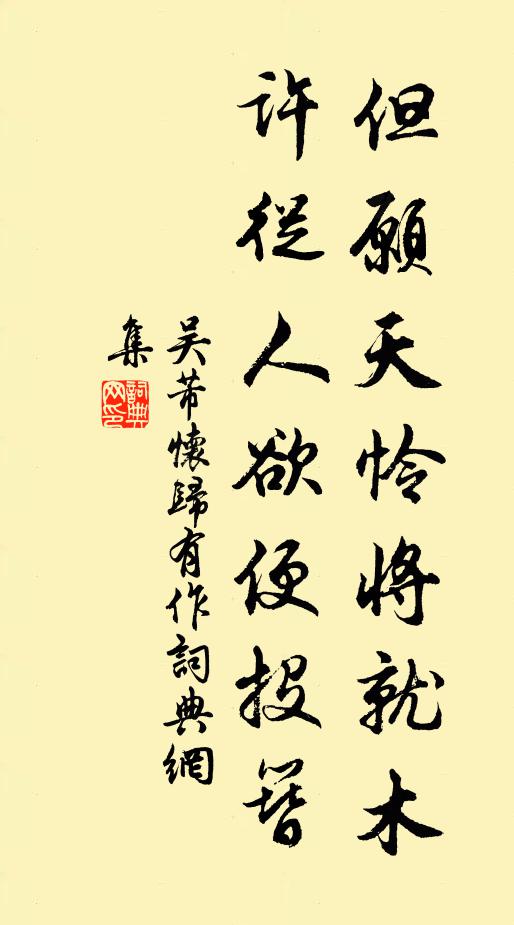 但願天憐將就木
許從人欲便投簪
吴芾懷歸有作詞典網
集
詞典
网印